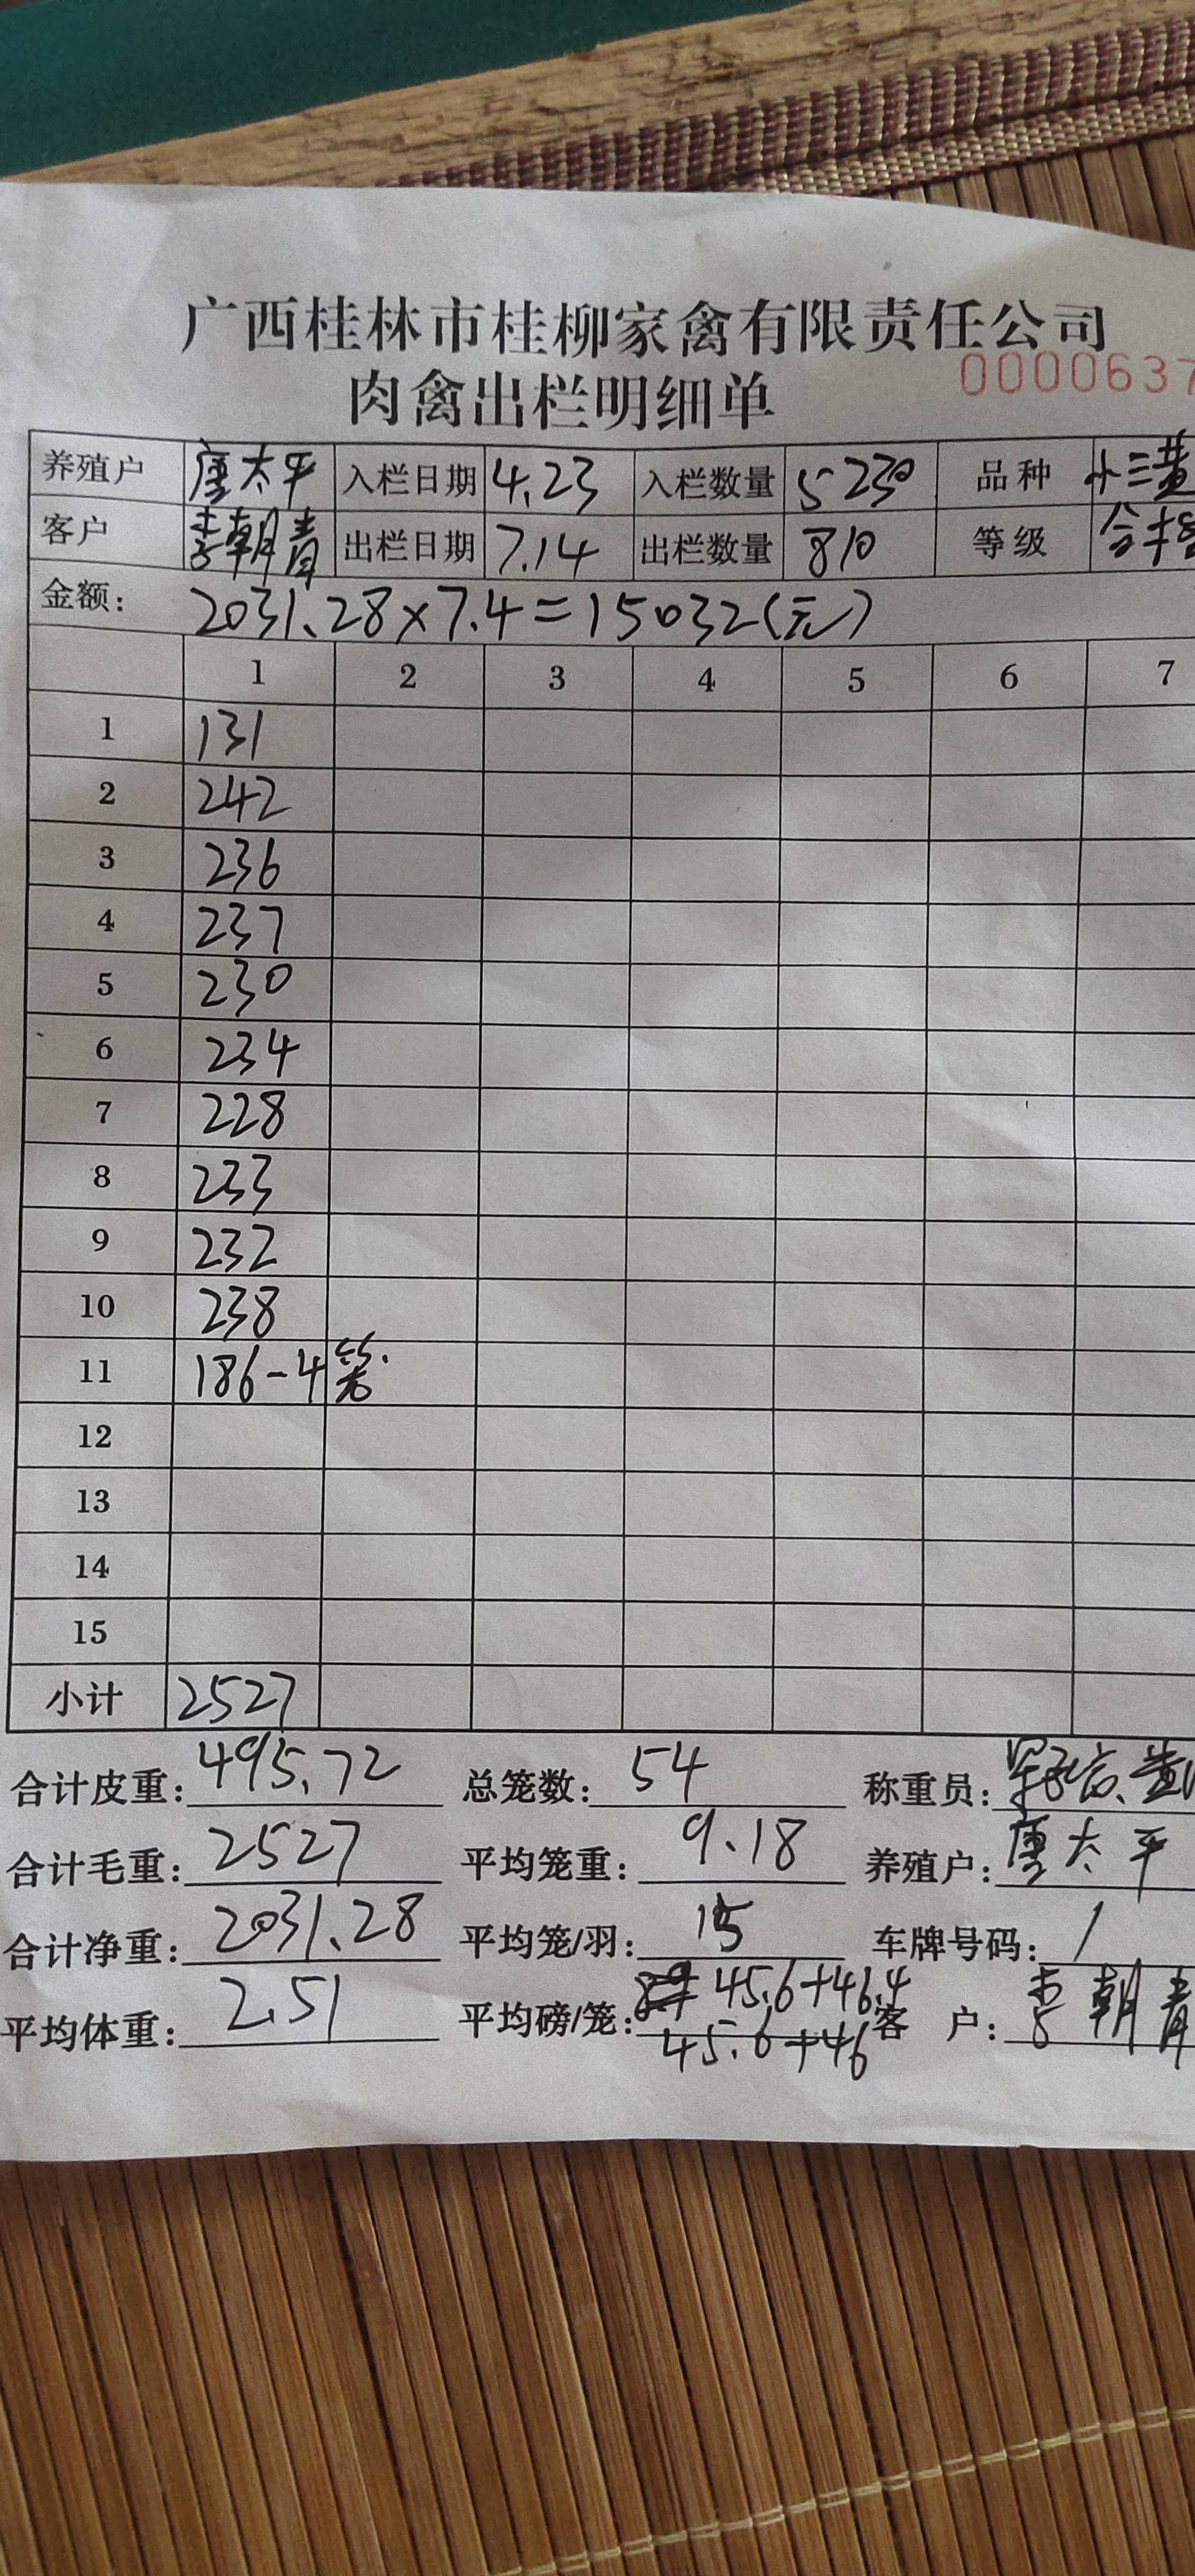 广西桂林市桂柳家禽有限责任公司
肉禽出栏明细单 0000637
养殖户 唐太平 入栏日期 4.23 入栏数量 5230 品种 小三黄
客户 李朝青 出栏日期 7.14 出栏数量 810 等级 合格
金额: 2031.28×7.4=15032(元)
1 2 3 4 5 6 7
1 131
2 242
3 236
4 237
5 230
6 234
7 228
8 233
9 232
10 238
11 186-4笼.
12
13
14
15
小计 2527
合计皮重: 495.72 总笼数: 54 称重员:
合计毛重: 2527 平均笼重: 9.18 养殖户: 唐太平
合计净重: 2031.28 平均笼/羽: 15 车牌号码: /
平均体重: 2.51 平均磅/笼: 45.6+46.4 客户: 李朝青
45.6+46